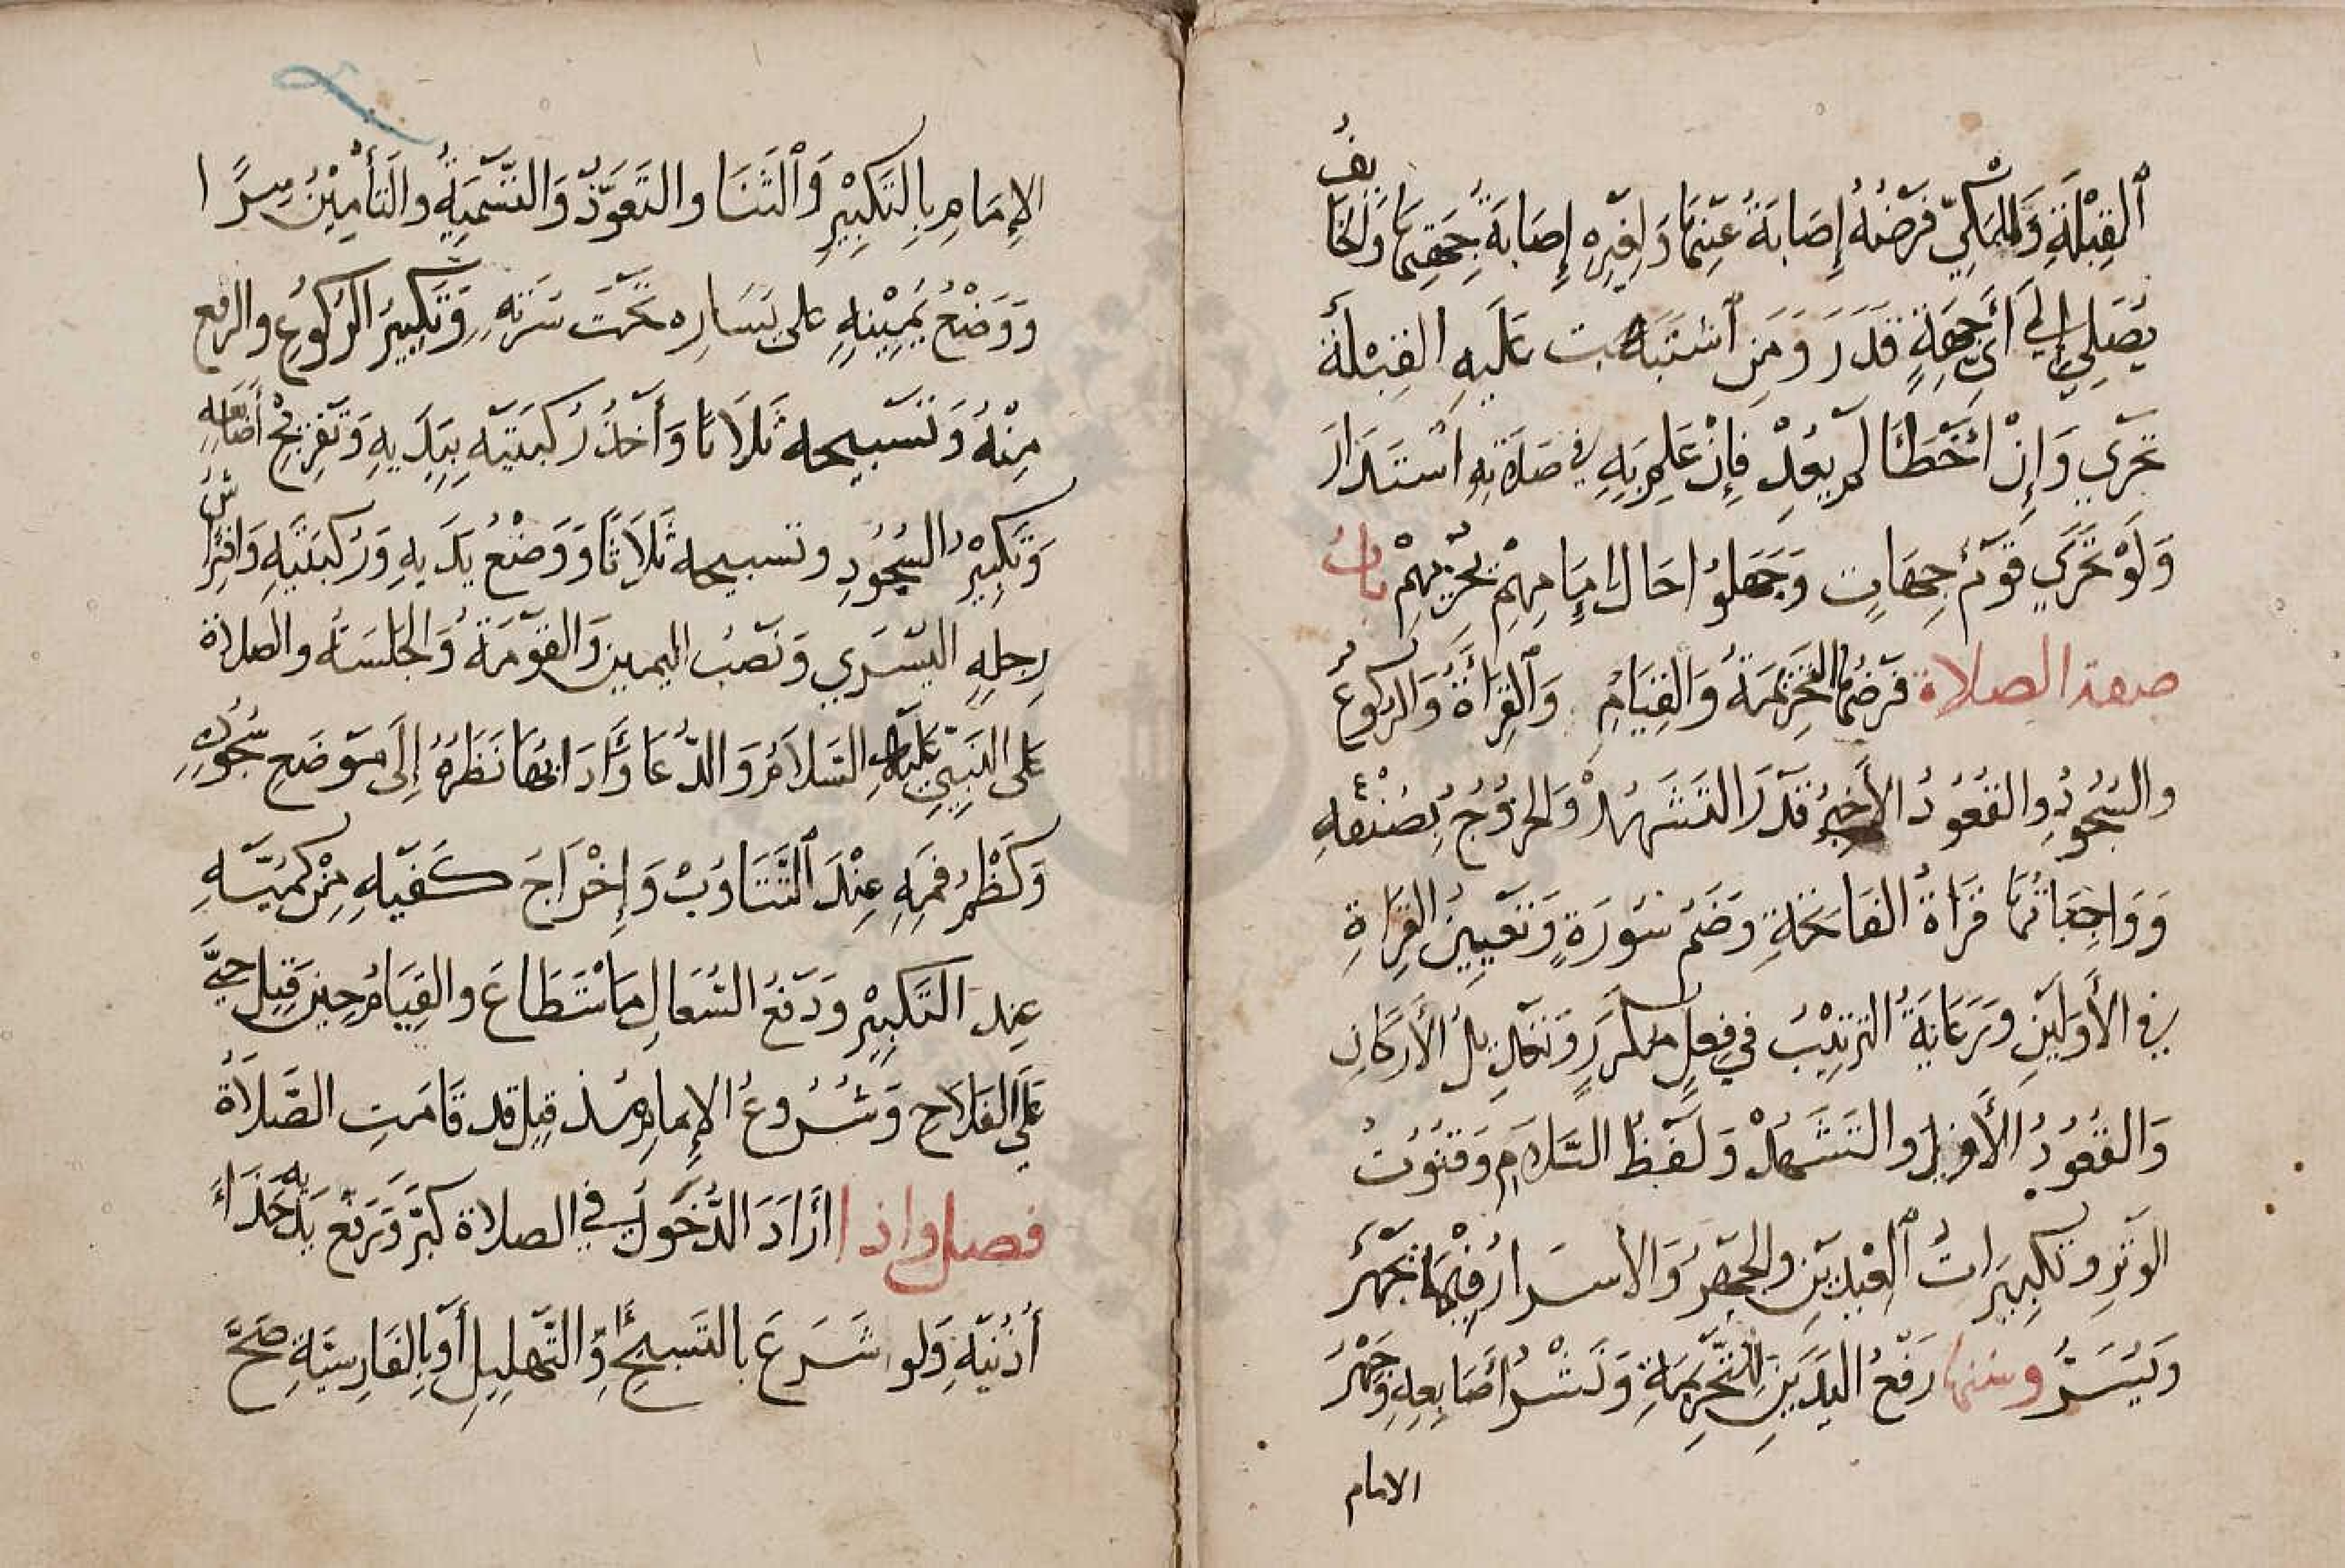 القِبْلَةِ وَللمَكِيّ فَرْضُهُ إِصَابَةُ عَيْنِهَا وَلِغَيْرِهِ إِصَابَةُ جِهَتِهَا وَالخَايِفُ
يُصَلِي إِلَى أَيِّ جِهَةٍ قَدَرَ وَمَنِ اشْتَبَهت عَلَيهِ القِبْلَة
تحَرّي وَإِنْ أَخْطَأَ لم يعِدْ فَإِنْ عَلِمَ بِهِ في صَلاتِهِ اسْتَدَارَ
وَلَوْ تَحَرَّي قَوْمٌ جِهَاتٍ وَجَهلوُا حَال إِمَامِهِمْ تجْزِيهِمْ بابُ
صفة الصلاة فَرْضُهَا التَّحْرِيمَةُ وَالقِيَامِ وَالقِرَأَةُ وَالرُكُوعُ
والسُجُودُ والقُعُودُ الأخِيرُ قَدْرَ التَشَهُدْ وَالخرُوُجُ بِصُنْعِهِ
وَوَاجِبَاتُهَا قرَاةُ الفَاتحَةِ وَضَم سُورَةٍ وَتَعْيِينُ القِرَاةِ
في الأَوْلَيَيْنِ وَرَعَايَةُ التَرتِيْبُ في فِعلٍ مُكَرَرٍ وَتَعْدِيلُ الأَرْكَانِ
وَالقُعُودُ الأَوْلُ والتَشَهدْ وَلَفْظُ السَّلَامِ وَقنُوُتُ
الوَترِ وَتكبِيرَاتُ العِيْدَيْنِ والجَهْرُ وَالأسْرَارُ فِيْمَا تجْهَرُ
وَيُسَرُّ وسننها رَفْعُ اليَدَيْنِ لِلتَّحْرِيمَةِ وَنَشْرُ أَصَابِعِهِ وَجَهْرُ
الامام
الإِمَامِ بِالتَكْبِيْرِ وَالثَنَا والتَعَوُّذْ وَالتَّسْمِيَةُ والتَأْمِيْنُ سِرًا
وَوَضْعُ يَمِيْنِهِ على يَسَارِه تحْتَ سَرَتِهِ وَتَكْبِيرُ الرُكُوعِ والرفع
مِنْهُ وَتَسْبِيحه ثَلَاثَا وَأَخذُ رُكبَتَيْه بِيَدَيهِ وَتَفْرِيجْ أَصَابِعِهِ
وَتَكْبِيْرُ السُجُودِ وتسبيحه ثَلَاثًا وَوَضْعُ يَدَيهِ وَرُكبَتَيهِ وَافْتِرَاشُ
رِجلِهِ اليُسْرَي وَنَصْبُ اليمين وَالقَوْمَةُ وَالجَلْسَةُ والصلاة
على النَبِيِّ عَلَيْهِ السَّلامُ وَالدُّعَا وَأَدَابُهَا نَظَرُهُ إِلَى مَوْضَعِ سُجُودِهِ
وَكَظْمُ فمِهِ عِنْدَ التَّثَاوُبْ وَإِخْرَاجَ كَفيْهِ مِنْ كمَيّهِ
عِند التَكْبِيْرِ وَدَفْعُ السُعَالِ مَا اسْتَطَاعَ والقِيَامُ حِينَ قِيلَ حَيَّ
عَلَي الفَلَاحِ وَشُرُوعُ الإِمامِ مُذ قِيل قد قَامَتِ الصَّلَاةُ
فصل واذا أَرَادَ الدُّخُولَ في الصلاة كبَّرَ وَرَفَعَ يَدَيْهِ حَذَاءَ
أُذُنَيْهِ وَلَو شَرَعَ بالتَسْبِيحِ وَالتَّهْلِيلِ أَو بِالفَارِسِيَّةِ صَحَّ